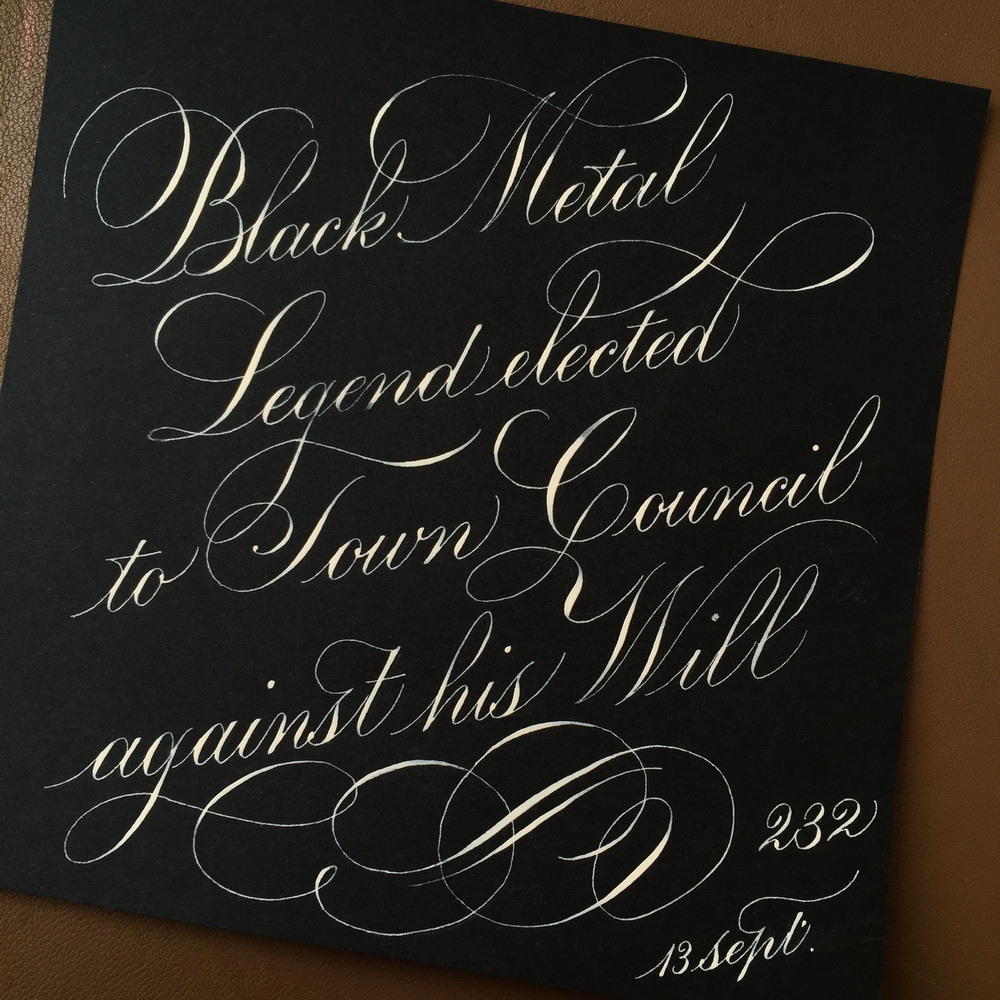 Black Metal
Legend elected
to Town Council
against his Will
232
13 sept.